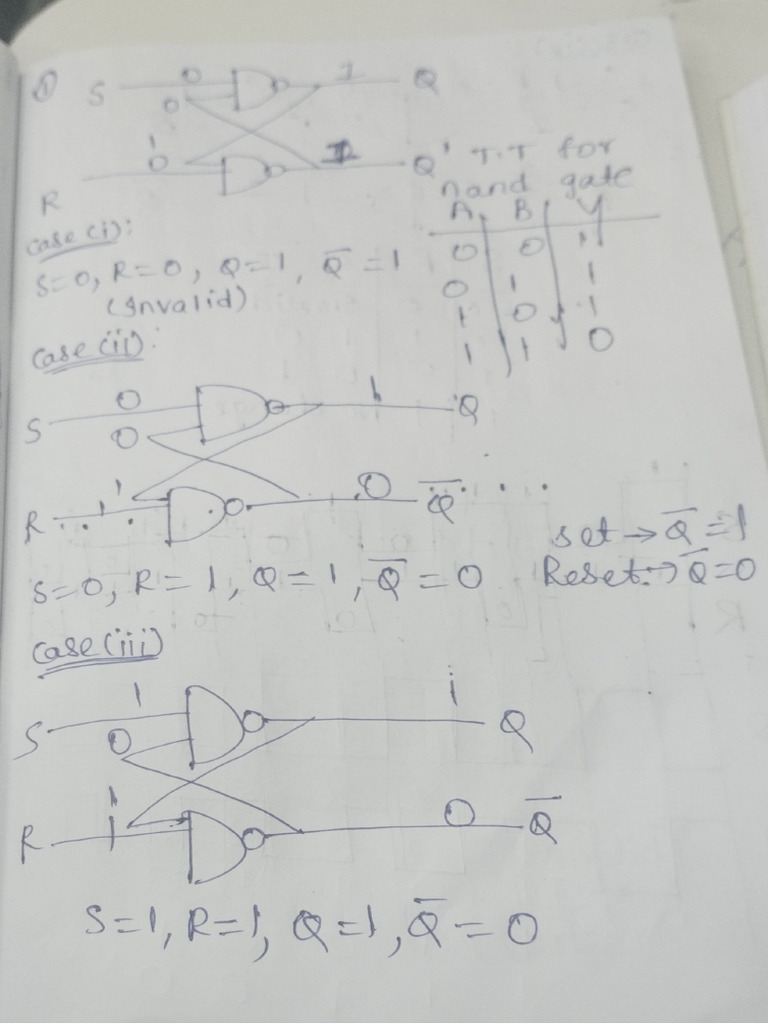 ① S 0 1 Q
0
1
0 1 Q'
R
T.T for
nand gate
A B Y
0 0 1
0 1 1
1 0 1
1 1 0
case(i):
S=0, R=0, Q=1, Q̅=1
(Invalid)
case(ii):
S 0 1 Q
0
1
R 1 0 Q̅
set → Q̅=1
Reset → Q̅=0
S=0, R=1, Q=1, Q̅=0
case(iii)
S 1 1 Q
0
1
R 1 0 Q̅
S=1, R=1, Q=1, Q̅=0